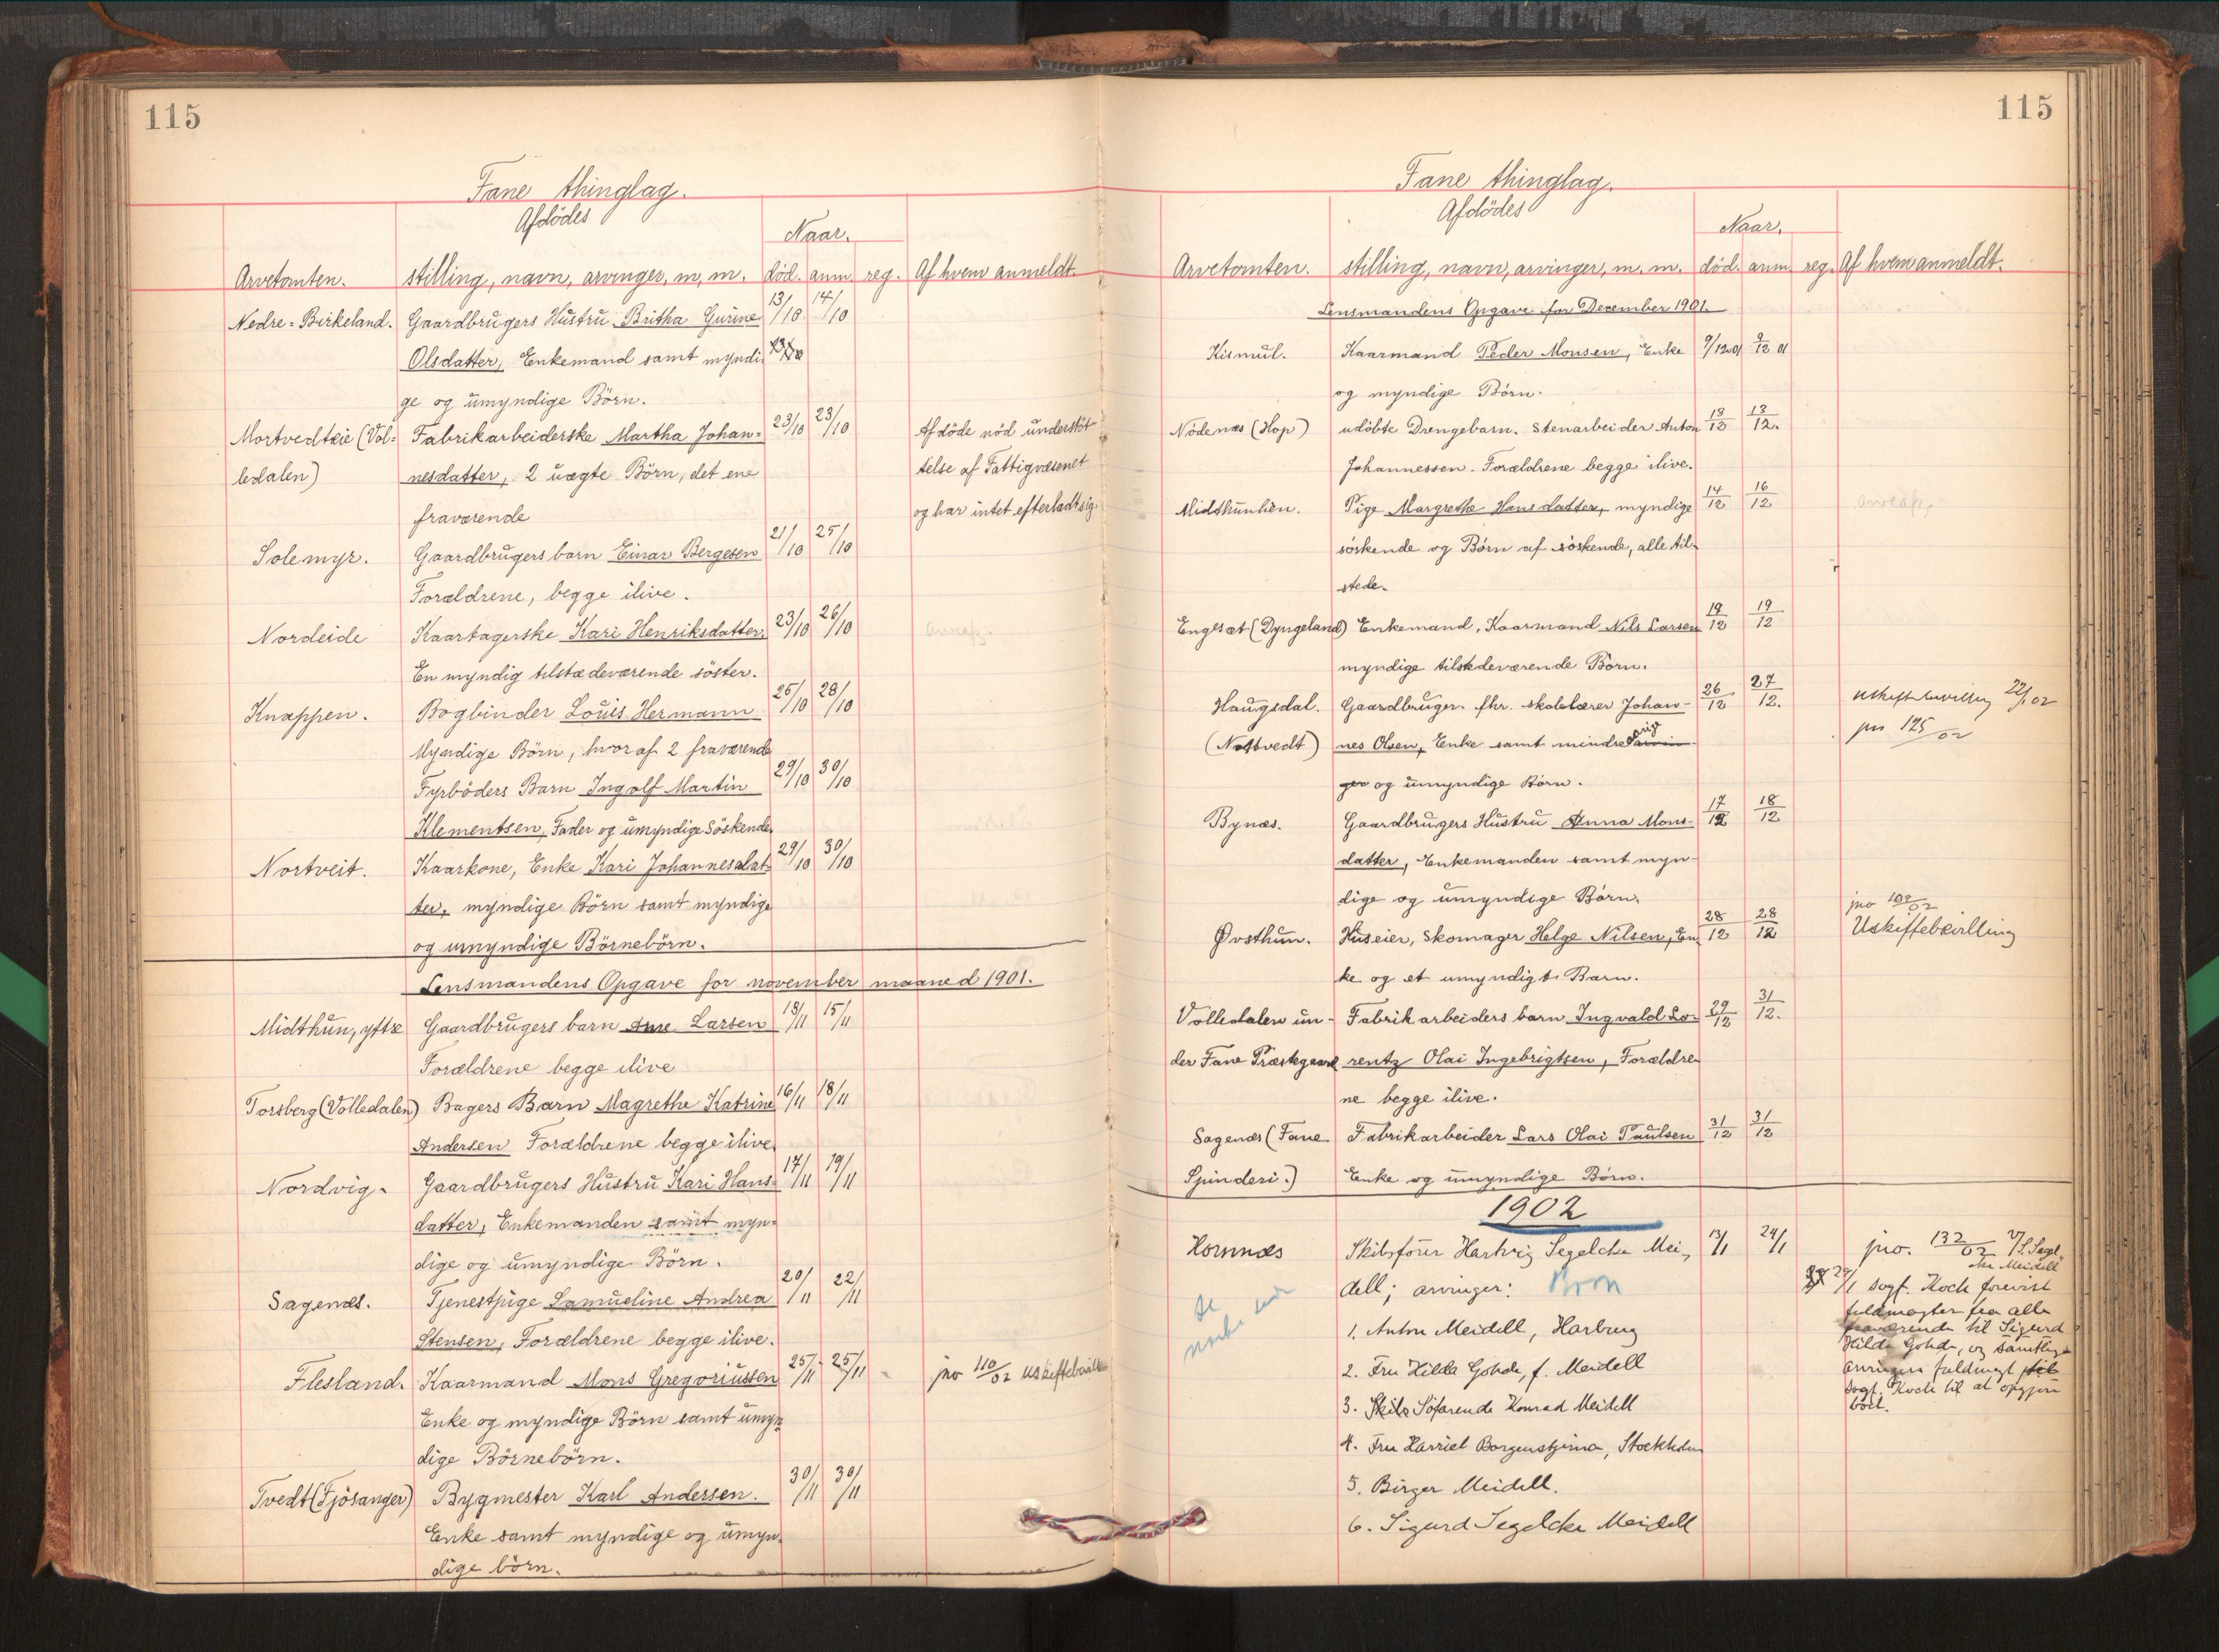 115
Fane thinglag.
Afdödes
Naar.
Arvetomten. stilling, navn, arvinger, m, m. död. anm. reg. Af hvem anmeldt.
Nedre=Birkeland. Gaardbrugers Hustru Britha Gurine 13/10 14/10
Olsdatter, Enkemand samt myndi-
ge og umyndige Börn.
Mortvedteie (Vol= Fabrikarbeiderske Martha Johan= 23/10 23/10 Afdöde nöd understöt
ledalen) nesdatter, 2 uægte Börn, det ene telse af Fattigvæsenet
fraværende og har intet efterladt sig.
Solemyr. Gaardbrugers barn Einar Bergesen 21/10 25/10
Forældrene, begge ilive.
Nordeide Kaartagerske Kari Henriksdatter. 23/10 26/10
En myndig tilstædeværende söster.
Knappen. Bogbinder Louis Hermann 25/10 28/10
Myndige Börn, hvoraf 2 fraværende
Fyrböders Barn Ingolf Martin 29/10 30/10
Klementsen, Fader og umyndige Söskende.
Nortveit. Kaarkone, Enke Kari Johannesdat= 29/10 30/10
ter, myndige Börn samt myndige
og umyndige Börnebörn.
Lensmandens Opgave for november maaned 1901.
Midthun, yftre Gaardbrugers barn Ane Larsen 13/11 15/11
Forældrene begge ilive
Torsberg (Volledalen) Bagers Barn Magrethe Katrine 16/11 18/11
Andersen Forældrene begge ilive.
Nordvig. Gaardbrugers Hustru Kari Hans= 17/11 19/11
datter, Enkemanden samt myn=
dige og umyndige Börn.
Sagenæs. Tjenestpige Samueline Andrea 20/11 22/11
Stensen, Forældrene begge ilive.
Flesland. Kaarmand Mons Gregoriussen 25/11 25/11 jno 110/02 uskiftebevill
Enke og myndige Börn samt umyn=
dige Börnebörn.
Tvedt (Fjösanger) Bygmester Karl Andersen. 30/11 30/11
Enke samt myndige og umyn=
dige börn.
115
Fane thinglag.
Afdödes
Naar.
Arvetomten. stilling, navn, arvinger, m. m. död. anm. reg. Af hvem anmeldt.
Lensmandens Opgave for December 1901.
Kismul. Kaarmand Peder Monsen, Enke 9/12 01 9/12 01
og myndige Börn.
Nödenæs (Hop) udöbte Drengebarn. Stenarbeider Anton 13/12 13/12.
Johannessen. Forældrene begge ilive.
Midthunlien. Pige Margrethe Hansdatter, myndige 14/12 16/12
söskende og Börn af söskende, alle til-
stede.
Englsæt (Dyngeland) Enkemand, Kaarmand Nils Larsen 19/12 19/12
myndige tilstedeværende Börn.
Haugsdal. Gaardbruger. fhr. skolelærer Johan- 26/12 27/12. uskiftebevilling 22/1 02
(Nattvedt) nes Olsen, Enke samt mindreaarig arvin jno 125/02
ger og umyndige Börn.
Bynæs. Gaardbrugers Hustru Anna Mons- 17/12 18/12
datter, Enkemanden samt myn-
dige og umyndige Börn.
jno 102/02
Øvsthun. Huseier, Skomager Helge Nilsen, En- 28/12 28/12 Uskiftebevilling
ke og et umyndigt Barn.
Volledalen un- Fabrikarbeiders barn Ingvald Lo- 29/12 31/12.
der Fane Præstegaard rentz Olai Ingebrigtsen, Forældre-
ne begge ilive.
Sagenæs (Fane Fabrikarbeider Lars Olai Paulsen 31/12 31/12
Spinderi.) Enke og umyndige Börn.
1902
Hornnæs Skibsförer Hartvig Segelcke Mei- 13/1 24/1 jno. 132/02 v/ S. Segel
cke Meidell
dell; arvinger: Börn 29/1 sagf. Koch forevist
fuldmagter fra alle
1. Anton Meidell, Harburg fraværende til Sigurd
Hilda Gohde, og samtlige
2. Fru Hilda Gohde, f. Meidell arvingers fuldmagt til
sagf. Koch til at opgjøre
3. Skibs Söfarende Konrad Meidell boet.
4. Fru Harriet Borgenstjerna, Stockholm
5. Birger Meidell.
6. Sigurd Segelcke Meidell